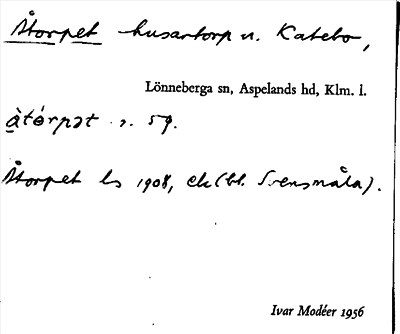 Åtorpet husartorp u. Katebo,
Lönneberga sn, Aspelands hd, Klm. l.
àtórpət 59.
Åtorpet ls 1908, ek (bl. Svensmåla).
Ivar Modéer 1956